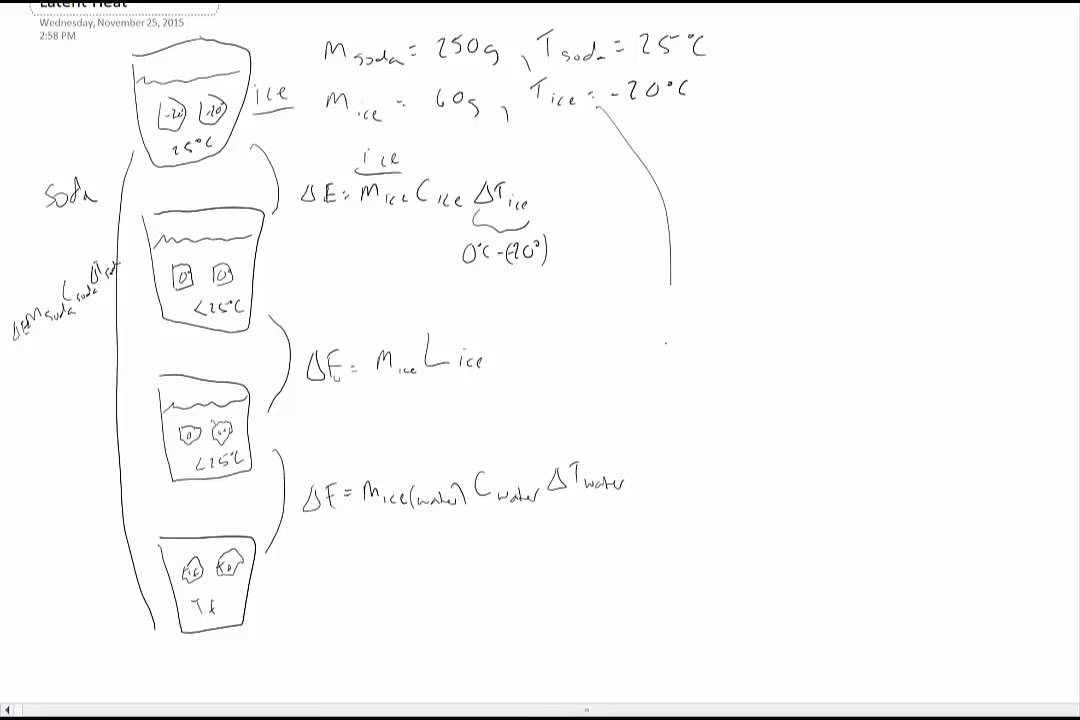 Latent Heat
Wednesday, November 25, 2015
2:58 PM
M soda = 250g , T soda = 25°C
ice
M ice = 60g , T ice = -20°C
-20° -20°
25°C
ice
soda
ΔE = M ice C ice ΔT ice
0°C - (-20°)
0° 0°
<25°C
ΔE = M soda C soda ΔT soda
ΔE = M ice L ice
0
<25°C
ΔE = M ice (water) C water ΔT water
Tf